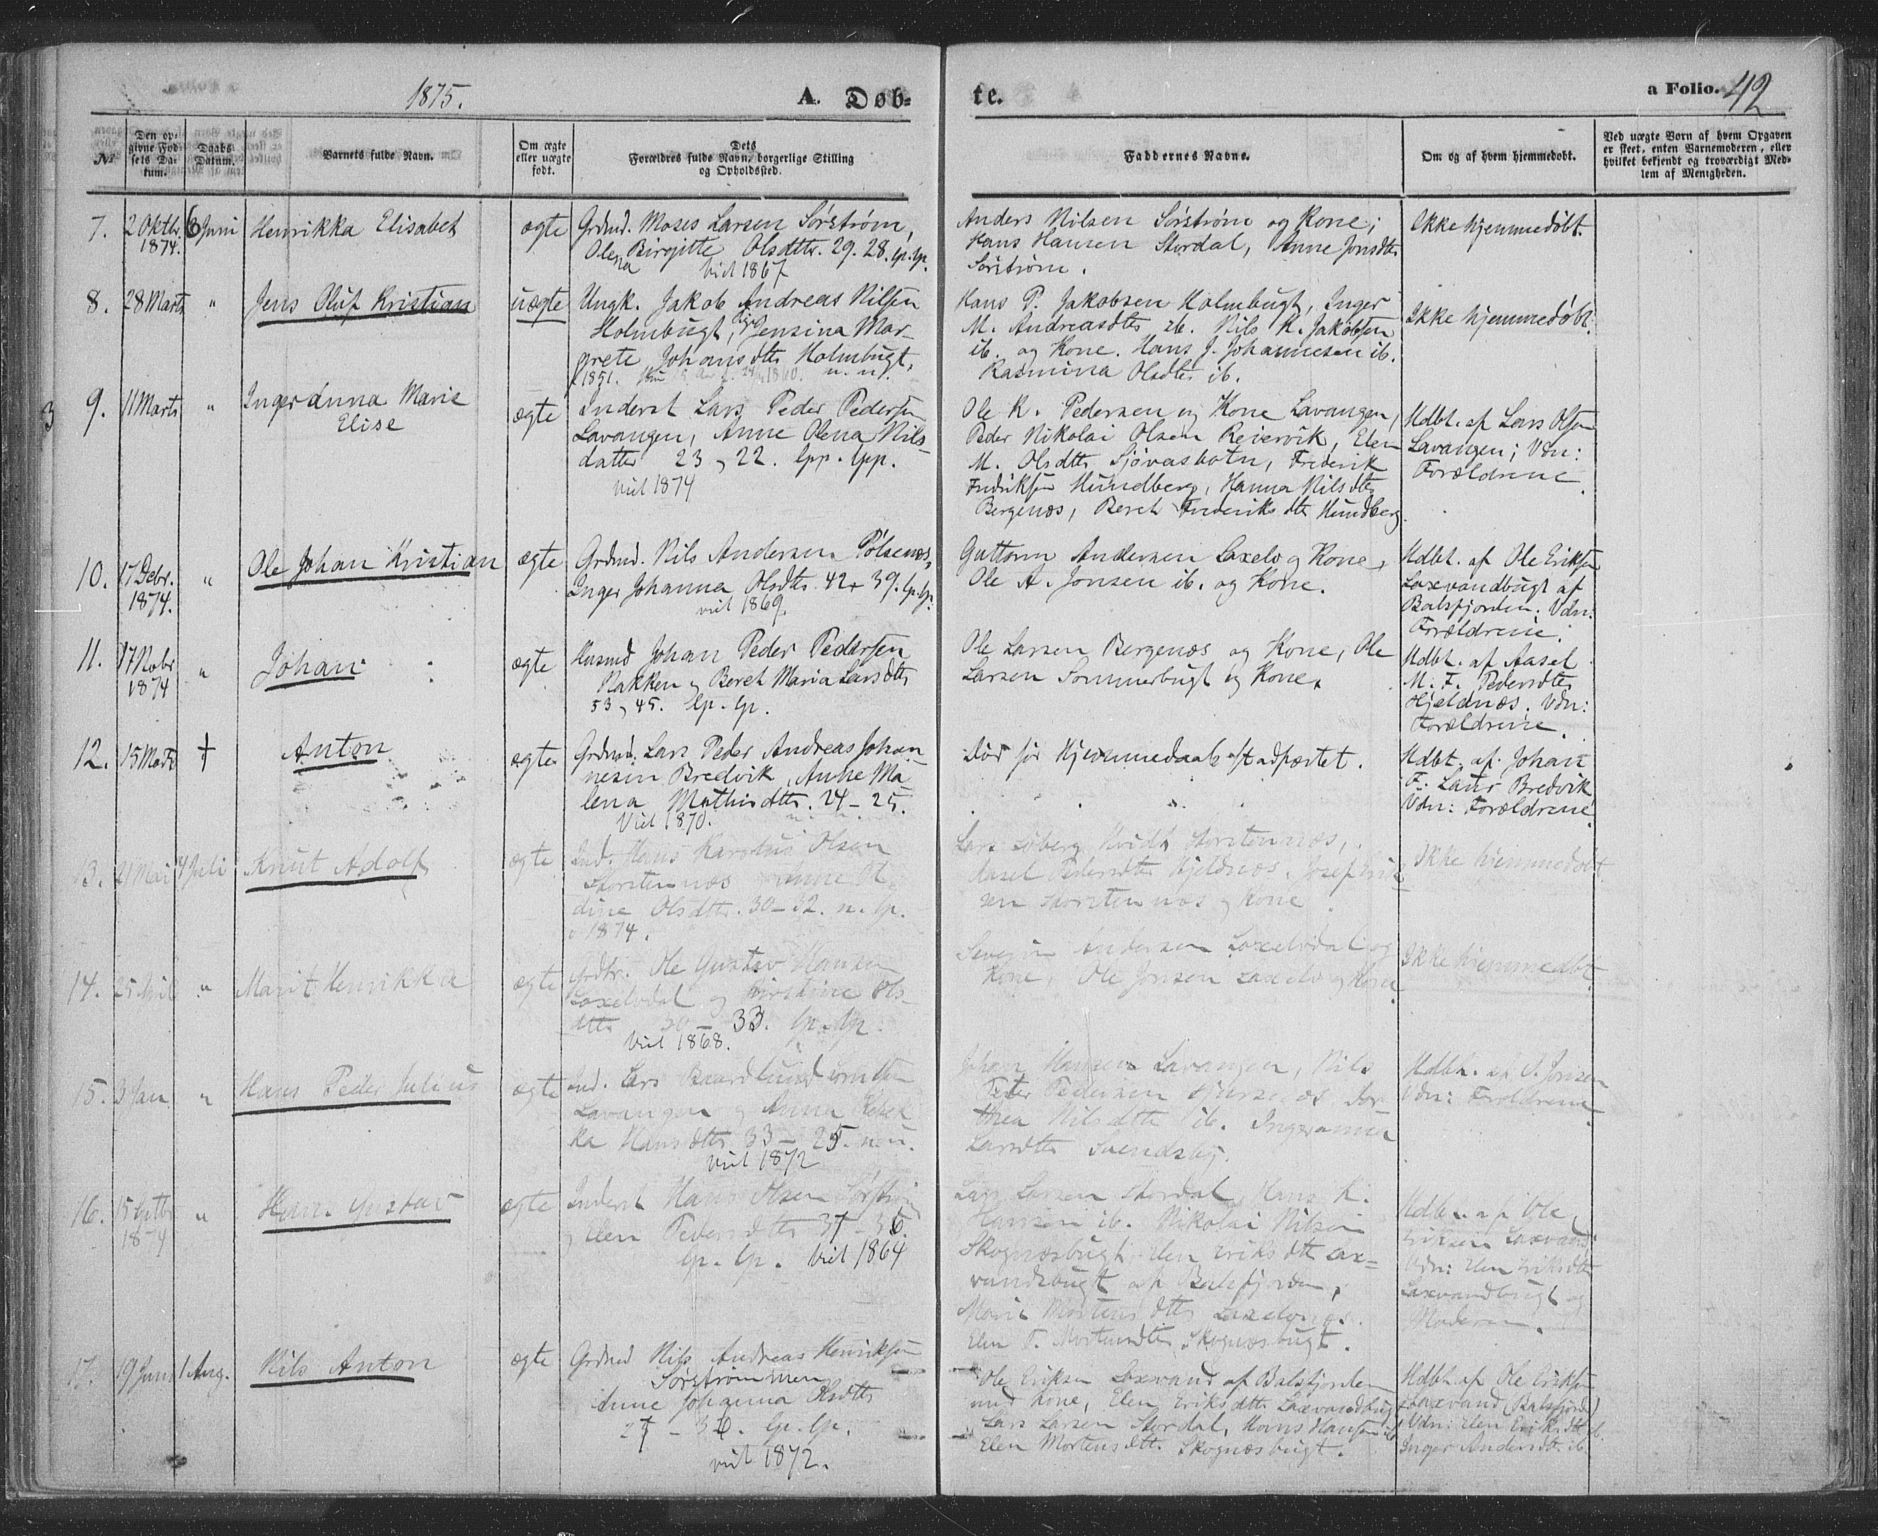 1875.
A. Døb-
te.
a Folio. 42
№
Den op-
givne Fød-
sels Da-
tum.
Daabs
Datum.
Barnets fulde Navn.
Om ægte
eller uægte
født.
Dets
Forældres fulde Navn, borgerlige Stilling
og Opholdssted.
Faddernes Navne.
Om og af hvem hjemmedøbt.
Ved uægte Børn af hvem Opgaven
er skeet, enten Barnemoderen, eller
hvilket bekjendt og troværdigt Med-
lem af Menigheden.
7. 2 Oktbr. 1874. 6 Juni Henrikka Elisabet ægte
Grdmd. Moses Larsen Sørstrøm,
Olena Birgitte Olsdttr. 29. 28. lp. lp.
Viet 1867
Anders Nilsen Sørstrøm og Kone;
Hans Hansen Stordal, Anne Jonsdttr
Sørstrøm.
Ikke hjemmedøbt.
8. 28 Marts " Jens Oluf Kristian uægte
Ungk. Jakob Andreas Nilsen
Holmbugt, Pige Jensina Mar-
grete Johansdttr Holmbugt,
1851. 1860. n. n.
Hans P. Jakobsen Holmbugt, Inger
M. Andreasdttr ib. Nils K. Jakobsen
ib. og Kone. Hans J. Johannesen ib.
Rasmina Olsdttr ib.
Ikke hjemmedøbt.
3 9. 11 Marts " Ingeranna Marie
Elise
ægte
Inderst Lars Peder Pedersen
Lavangen, Anne Olena Nils-
datter 23 - 22. lpp. lpp.
viet 1874
Ole K. Pedersen og Kone Lavangen,
Peder Nikolai Olsen Reiervik, Elen
M. Olsdttr Sjøvasbotn, Frederik
Fredriksen Hundberg, Hanna Nilsdttr
Bergenæs, Beret Frederiksdttr Hundberg
Hdbt. af Lars Olsen
Lavangen; Vdn:
Forældrene.
10. 17 Debr. 1874. " Ole Johan Kristian ægte
Grdmd. Nils Andersen Pølsenæs,
Inger Johanna Olsdttr. 42 - 39. lp. lp.
viet 1869.
Guttorm Andersen Laxelv og Kone,
Ole A. Jonsen ib. og Kone.
Hdbt. af Ole Eriksen
Laxvandbugt af
Balsfjorden. Vdn:
Forældrene.
11. 17 Nobr 1874 " Johan ægte
Husmd Johan Peder Pedersen
Nakken og Beret Maria Larsdttr
53 - 45. lp. lp.
Ole Larsen Bergenæs og Kone, Ole
Larsen Sommerbugt og Kone.
Hdbt. af Aasel
M. F. Pedersdttr
Hjeldnæs. Vdn:
Forældrene.
12. 15 Marts † Anton ægte
Grdmd. Lars Peder Andreas Johan-
nesen Bredvik, Anne Ma-
lena Mathisdttr. 24 - 25.
Viet 1870. n. n.
Død før Hjemmedaab stadfæstet.
Hdbt. af Johan
F. Laurs Bredvik
Vdn: Forældrene
13. 21 Mai 4 Juli Knut Adolf ægte
Ind. Hans Karolus Olsen
Storstennæs Anne
dine Olsdttr. 30 - 32. n. lp.
1874.
Lars Søberg Kvidt Storstennæs,
Aasel Pedersdttr Hjeldnæs, Josef Erik-
sen Storstennæs og Kone.
Ikke hjemmedøbt.
14. 25 April " Marit Henrikka ægte
Grdbr. Ole Gustav Hansen
Laxelvdal og Kirstine Ols-
dttr 30 - 33. lp. lp.
Viet 1868.
Severin Andersen Laxelvdal og
Kone, Ole Jonsen Laxelv og Kone
Ikke hjemmedøbt.
15. 3 Jan " Hans Peder Julius ægte
Ind. Lars Baardlund
Lavangen og Anna
ka Hansdttr 33 - 25. n. n.
Viet 1872
Johan Hansen Lavangen, Nils
Peter Pedersen Dor-
thea Nilsdttr ib. Ingeranna
Larsdttr Svendsby.
Hdbt. af J. Jonsen
Vdn: Forældrene.
16. " Hans Gustav ægte
Inderst Hans Olsen
og Elen Pedersdttr 37 - 36.
lp. lp. Viet 1864
Lars Larsen Stordal, Hans K.
Hansen ib. Nikolai Nilsen
Skognæsbugt Elen Eriksdttr Lax-
vandsbugt af Balsfjorden,
Marit Mortensdttr
Elen P. Mortensdttr Skognæsbugt.
Hdbt. af Ole
Eriksen Laxvand
Vdn: Elen Eriksdttr
Laxvandbugt og
Moderen.
17. 19 Juni 1 Aug. Nils Anton ægte
Grdmd Nils Andreas Henriksen
Sørstrømmen
Anne Johanna Olsdttr
27 - 36. lp. lp.
viet 1872.
Ole Eriksen Laxvand af Balsfjorden
med Kone, Elen Eriksdttr Laxvandbugt
Lars Larsen Stordal, Hans Hansen ib
Elen Mortensdtt. Skognæsbugt.
Hdbt. af Ole Eriksen
Laxvand (Balsfjord)
Vdn: Elen Eriksdtt ib.
Inger Andersdt. ib.